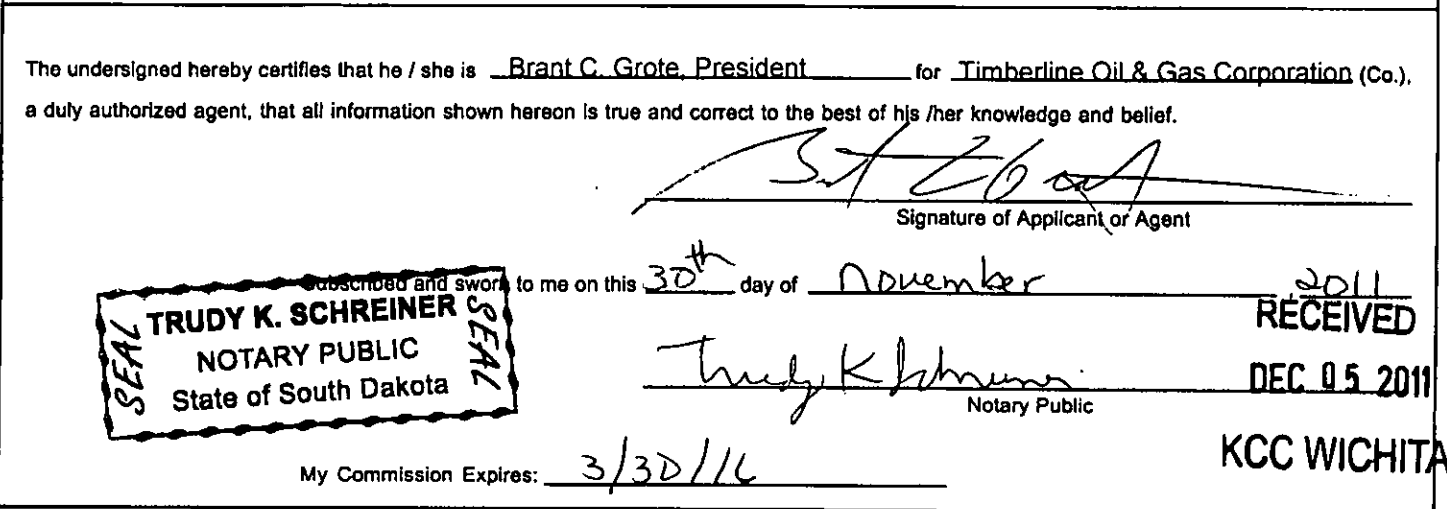 The undersigned hereby certifies that he / she is Brant C. Grote, President for Timberline Oil & Gas Corporation (Co.),
a duly authorized agent, that all information shown hereon is true and correct to the best of his /her knowledge and belief.
Signature of Applicant or Agent
Subscribed and sworn to me on this 30th day of November 2011
SEAL
TRUDY K. SCHREINER
NOTARY PUBLIC
State of South Dakota
SEAL
RECEIVED
Trudy K Schreiner
Notary Public
DEC 05 2011
KCC WICHITA
My Commission Expires: 3/30/16